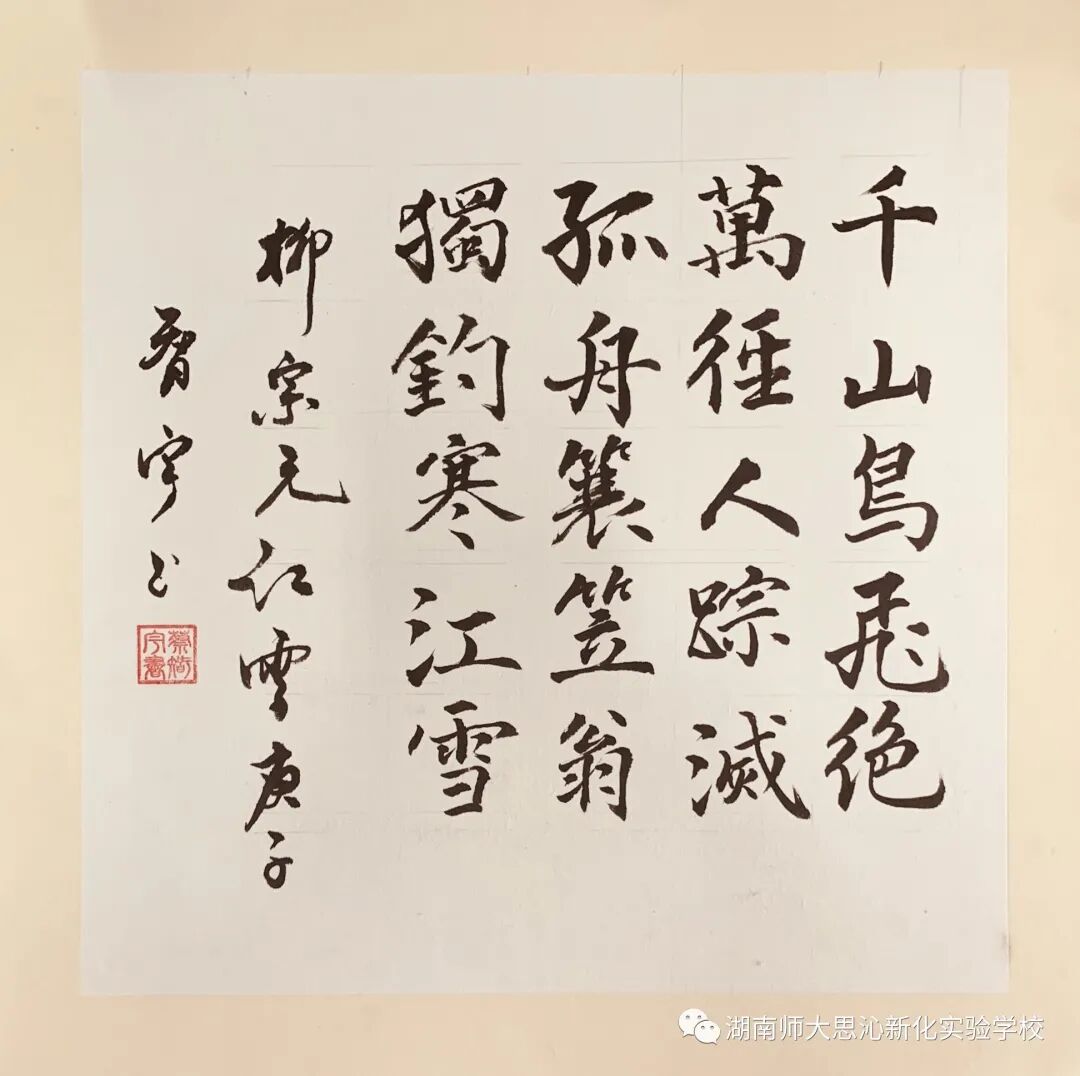 千山鳥飛絶
萬徑人踪滅
孤舟簑笠翁
獨釣寒江雪
柳宗元江雪庚子
宇书
湖南师大思沁新化实验学校